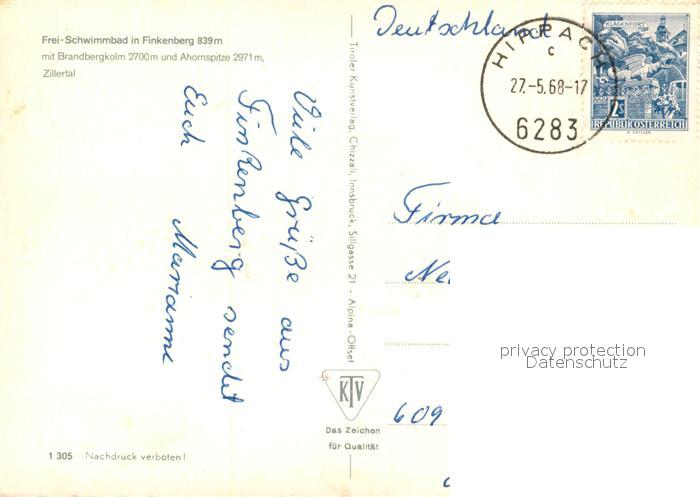 Frei-Schwimmbad in Finkenberg 839m
mit Brandbergkolm 2700m und Ahornspitze 2971m,
Zillertal
Viele Grüße aus
Finkenberg sendet
Euch
Marianne
1 305 Nachdruck verboten!
Tiroler Kunstverlag, Chizzali, Innsbruck, Sillgasse 21 - Alpina-Offset
KTV
Das Zeichen
für Qualität
Deutschland
HIPPACH
c
27.-5.68-17
6283
KLAGENFURT
2S
REPUBLIK ÖSTERREICH
Firma
609
privacy protection
Datenschutz